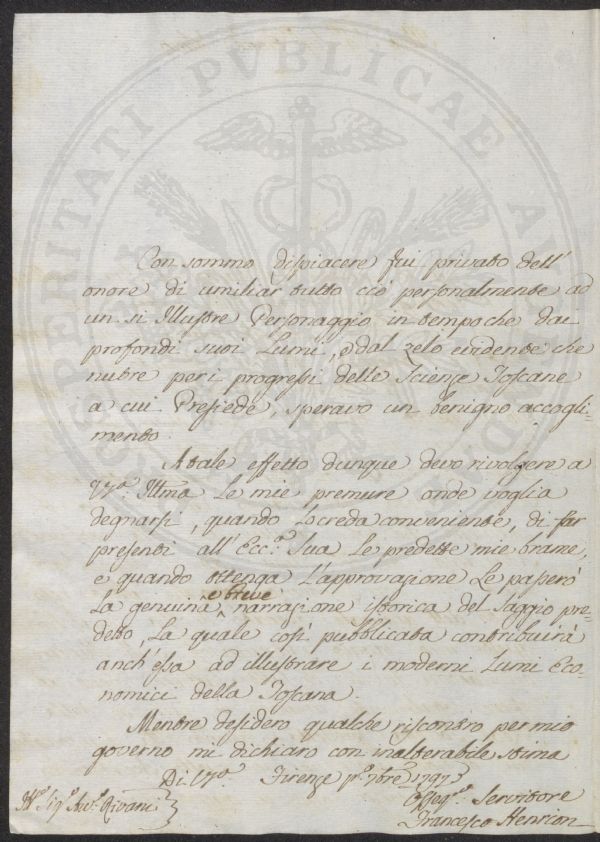 PROSPERITATI PVBLICAE AVGENDAE
Con sommo dispiacere fui privato dell'
onore di umiliar tutto ciò personalmente ad
un si Illustre Personaggio in tempo che dai
profondi suoi Lumi, e dal zelo evidente che
nutre per i progressi delle Scienze Toscane
a cui Presiede, speravo un benigno accogli=
mento.
A tale effetto dunque devo rivolgere a
V.S. Illma le mie premure onde voglia
degnarsi, quando lo creda conveniente, di far
presenti all' Ecc.a Sua le predette mie brame,
e quando ottenga l'approvazione le passerò
la genuina e breve narrazione istorica del Saggio pre=
detto, la quale così pubblicata contribuirà
anch'essa ad illustrare i moderni Lumi Eco=
nomici della Toscana.
Mentre desidero qualche riscontro per mio
governo mi dichiaro con inalterabile stima
Di V.S. Firenze p.o 7bre 1797
Sig.r Avv.o Rivani
Osseq.o Servitore
Francesco Henrion